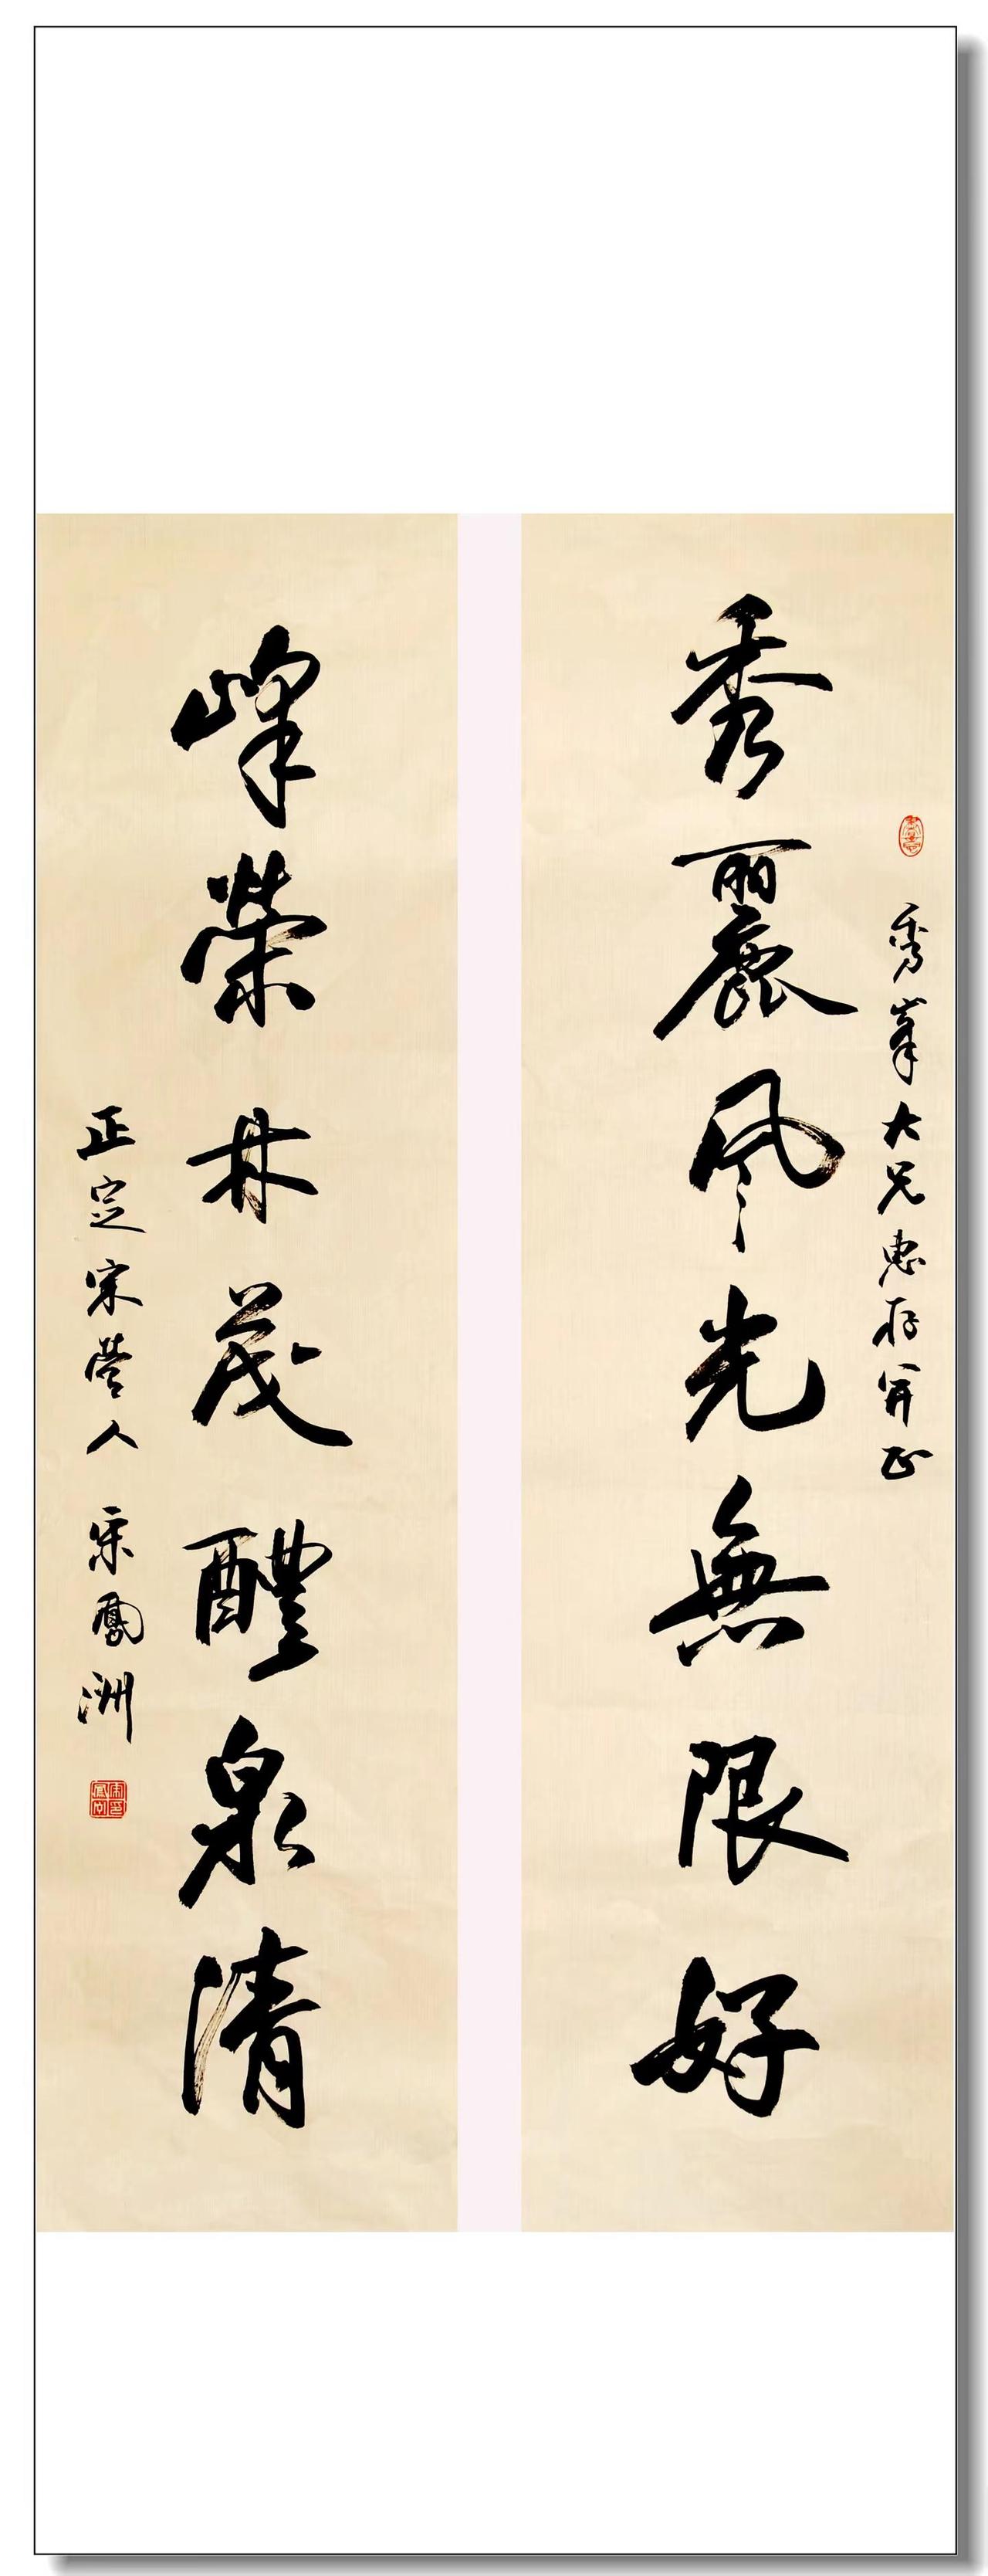 秀峯大兄惠存并正
秀麗风光無限好
峰荣林茂醴泉清
正定宋营人 宋鳳洲